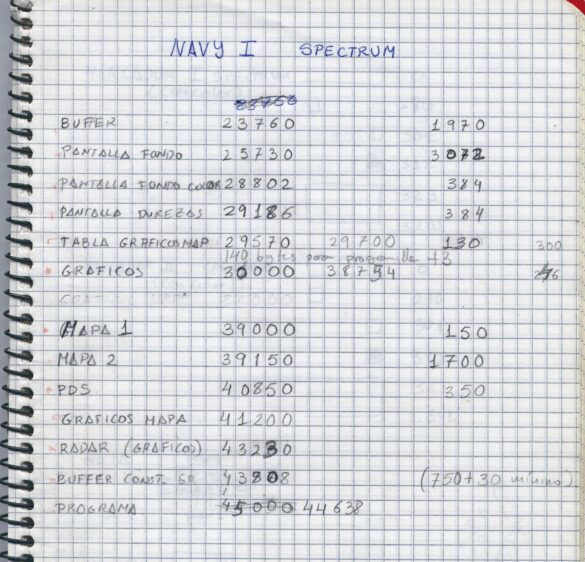 NAVY I SPECTRUM
BUFFER 23760 1970
PANTALLA FONDO 25730 3072
PANTALLA FONDO COLOR 28802 384
PANTALLA DUREZAS 29186 384
TABLA GRAFICOS MAP 29570 29700 130 300
140 bytes para programilla +3
GRAFICOS 30000 38754
MAPA 1 39000 150
MAPA 2 39150 1700
PDS 40850 350
GRAFICOS MAPA 41200
RADAR (GRAFICOS) 43230
BUFFER CONST. GR. 43808 (750+30 mínimo)
PROGRAMA 45000 44638